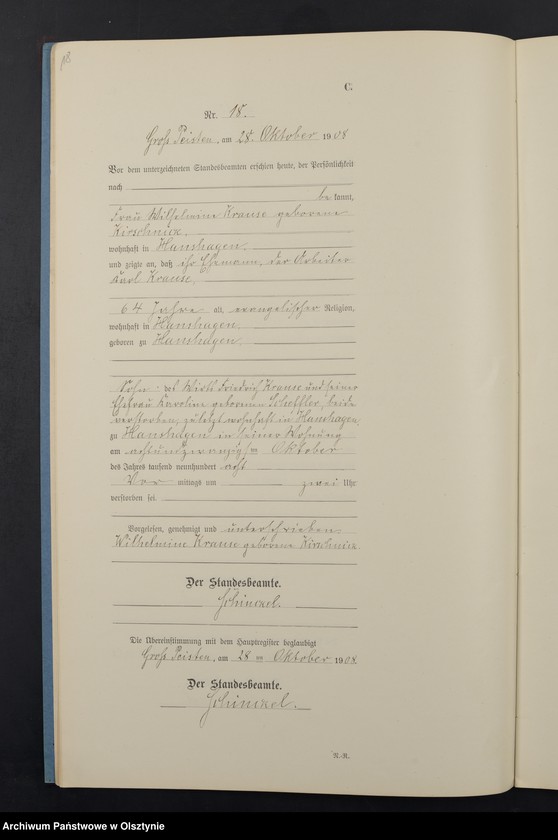 C.
Nr. 18.
Groß Peisten, am 28. Oktober 1908
Vor dem unterzeichneten Standesbeamten erschien heute, der Persönlichkeit
nach
be kannt,
Frau Wilhelmine Krause geborene
Kirschnick,
wohnhaft in Hanshagen,
und zeigte an, daß ihr Ehemann, der Arbeiter
Karl Krause,
64 Jahre alt, evangelischer Religion,
wohnhaft in Hanshagen,
geboren zu Hanshagen,
Sohn des Wirts Friedrich Krause und seiner
Ehefrau Karoline geborenen Scheffler, beide
verstorben, zuletzt wohnhaft in Hanshagen,
zu Hanshagen in seiner Wohnung
am achtundzwanzigsten Oktober
des Jahres tausend neunhundert acht
Vor mittags um zwei Uhr
verstorben sei.
Vorgelesen, genehmigt und unterschrieben.
Wilhelmine Krause geborene Kirschnick
Der Standesbeamte.
Schinckel.
Die Übereinstimmung mit dem Hauptregister beglaubigt
Groß Peisten, am 28 ten Oktober 1908.
Der Standesbeamte.
Schinckel.
N.-R.
Archiwum Państwowe w Olsztynie